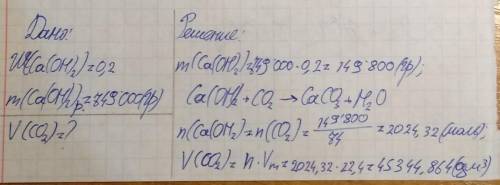 Дано:
W(Ca(OH)₂)=0,2
m(Ca(OH)₂)р=749000(гр)
V(CO₂)=?
Решение:
m(Ca(OH)₂)=749'000·0,2=149'800(гр);
Ca(OH)₂+CO₂→CaCO₃+H₂O
n(Ca(OH)₂)=n(CO₂)=149'800/74=2024,32(моль);
V(CO₂)=n·Vm=2024,32·22,4=45344,864(дм³)